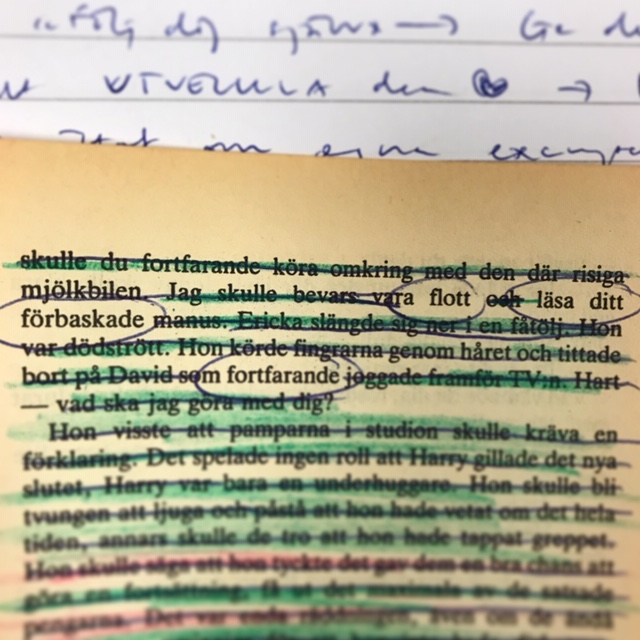 UTVECKLA den → 
om
skulle du fortfarande köra omkring med den där risiga
mjölkbilen. Jag skulle bevars vara flott och läsa ditt
förbaskade manus. Ericka slängde sig ner i en fåtölj. Hon
var dödstrött. Hon körde fingrarna genom håret och tittade
bort på David som fortfarande joggade framför TV:n. Hart
— vad ska jag göra med dig?
Hon visste att pamparna i studion skulle kräva en
förklaring. Det spelade ingen roll att Harry gillade det nya
slutet, Harry var bara en underhuggare. Hon skulle bli
tvungen att ljuga och påstå att hon hade vetat om det hela
tiden, annars skulle de tro att hon hade tappat greppet.
Hon skulle säga att hon tyckte det gav dem en bra chans att
göra en fortsättning, få ut det maximala av de satsade
pengarna. Det var enda räddningen, även om de ändå